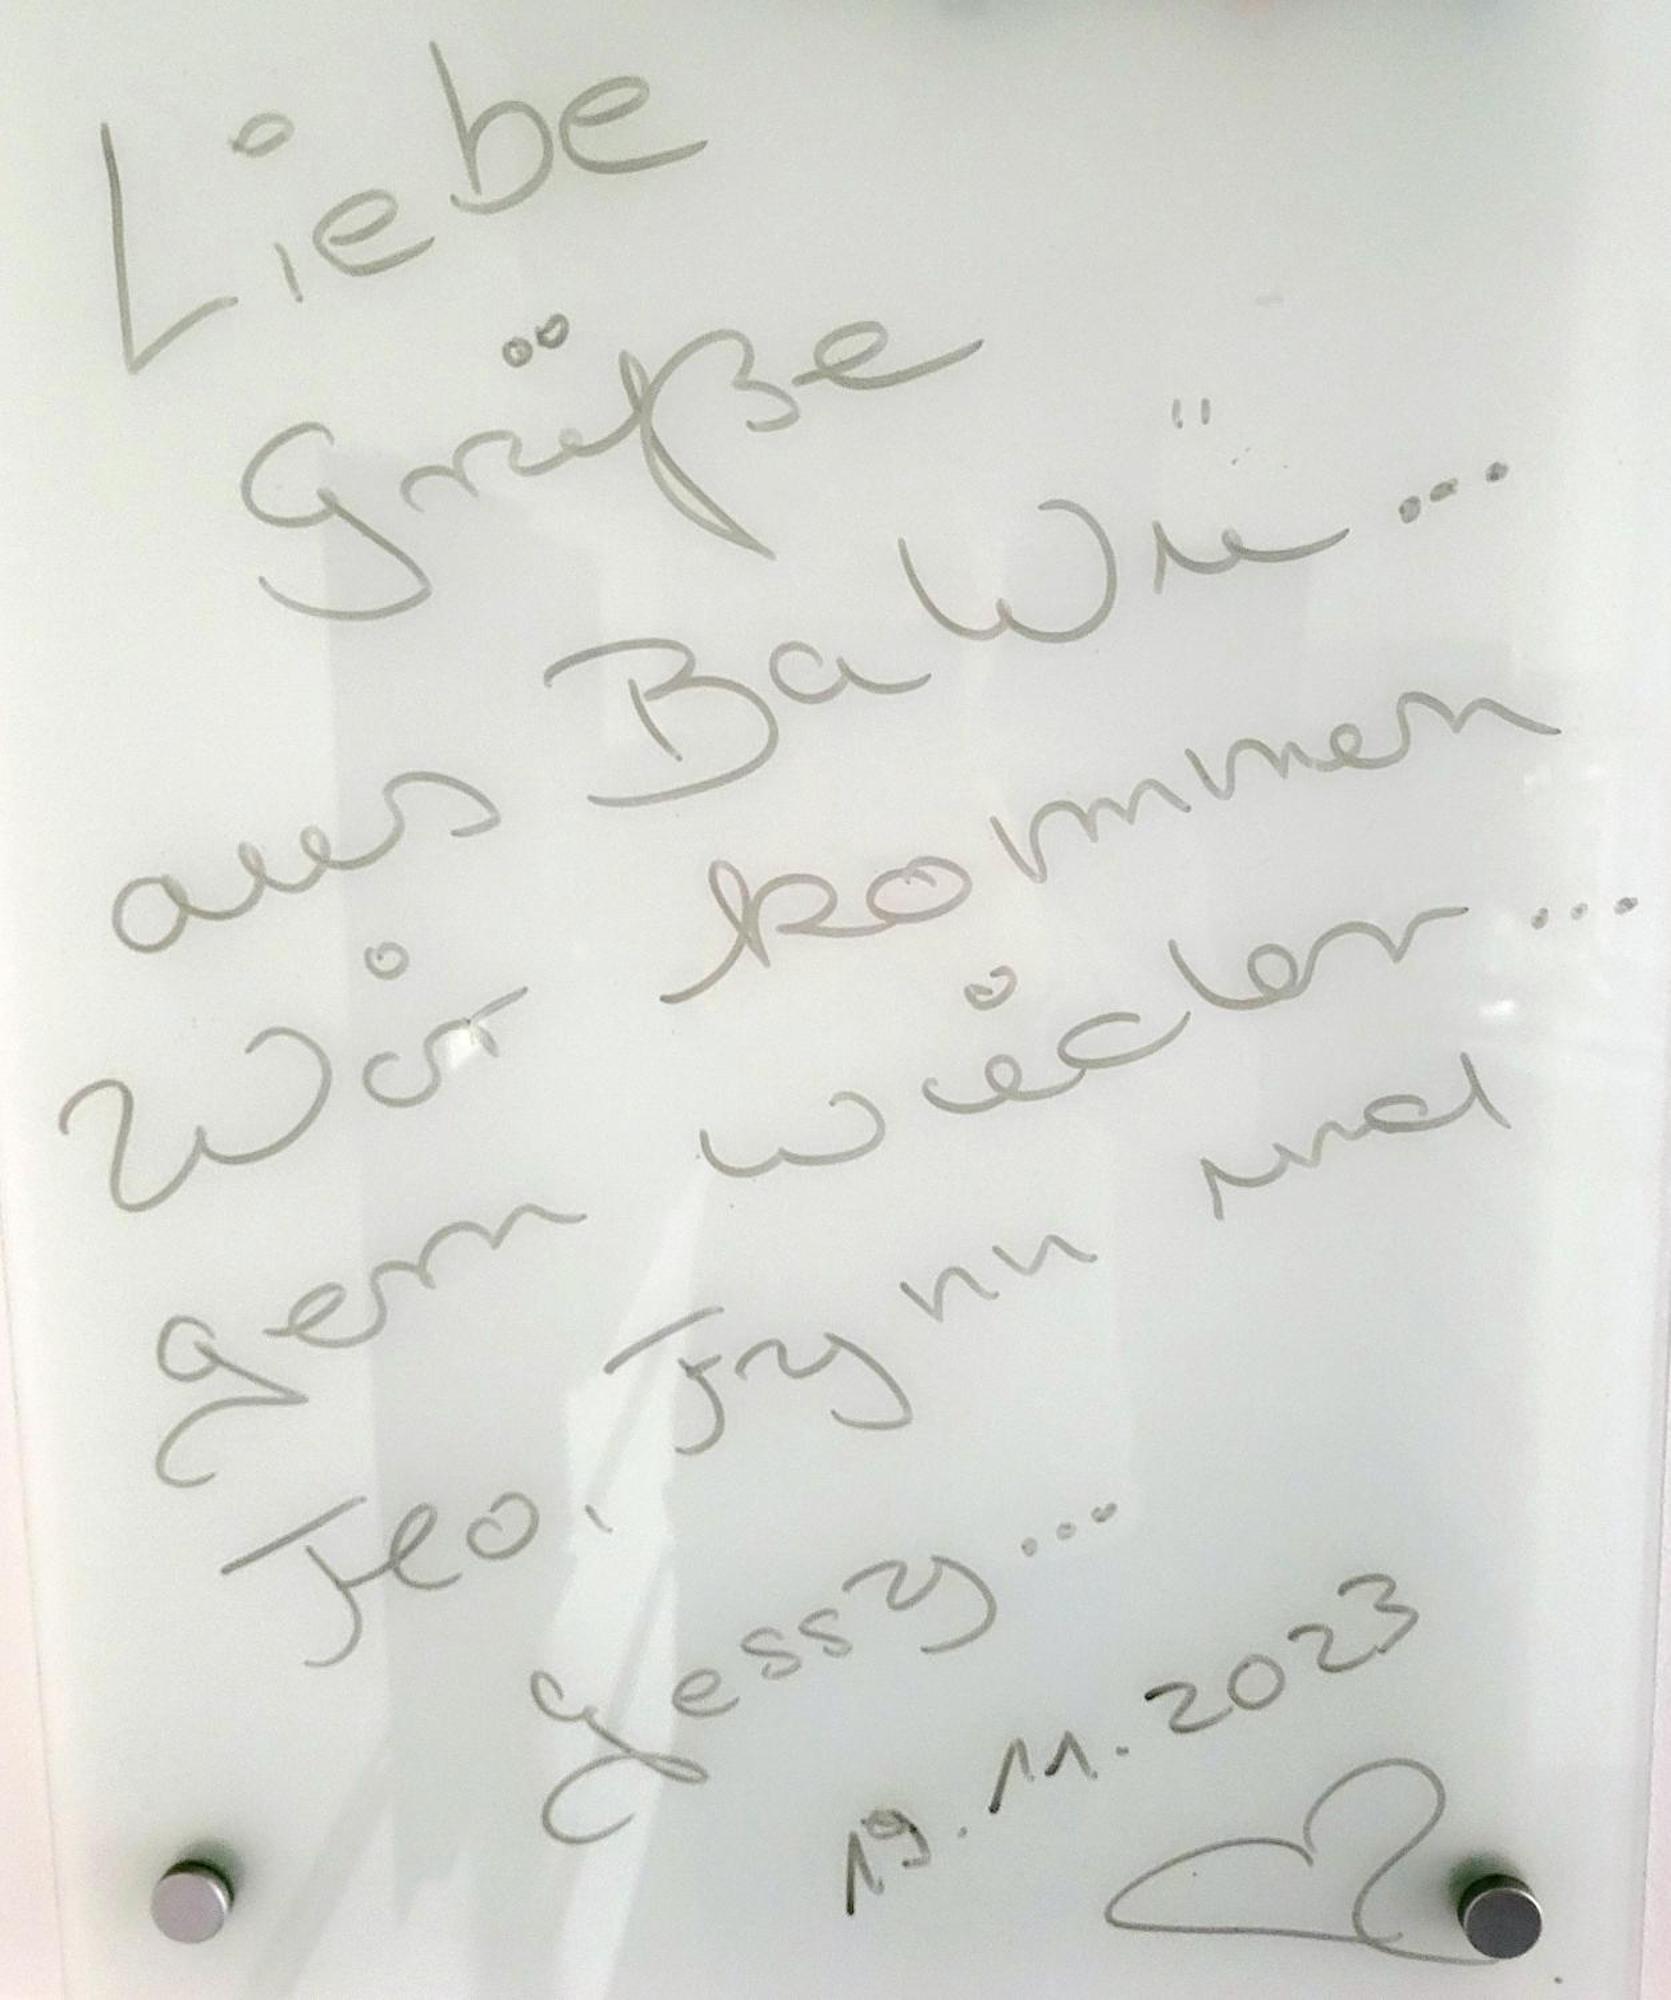 Liebe
Grüße
aus BaWü...
Wir kommen
gern wieder...
Flo, Fynn und
Jessy...
19.11.2023